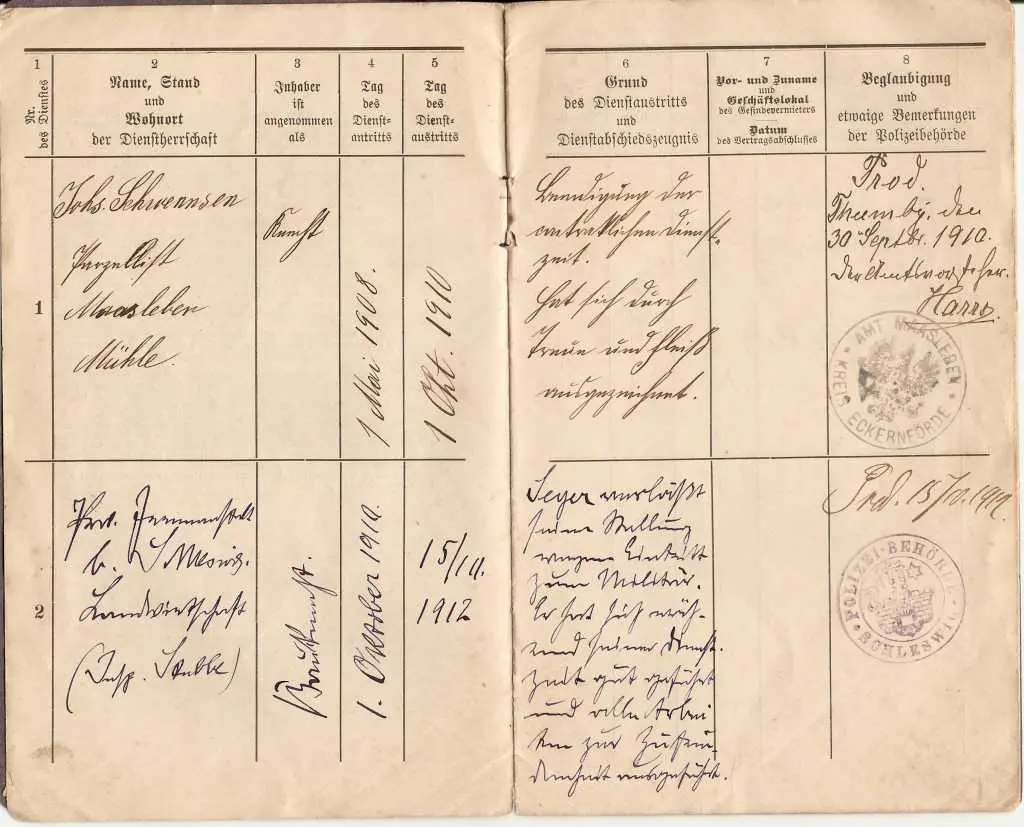 1
Nr. des Dienstes
2
Name, Stand
und
Wohnort
der Dienstherrschaft
3
Inhaber
ist
angenommen
als
4
Tag
des
Dienst-
antritts
5
Tag
des
Dienst-
austritts
6
Grund
des Dienstaustritts
und
Dienstabschiedszeugnis
7
Vor- und Zuname
und
Geschäftslokal
des Gesindevermieters
Datum
des Vertragsabschlusses
8
Beglaubigung
und
etwaige Bemerkungen
der Polizeibehörde
1
Johs. Schwennsen
Parzellist
Maasleben
Mühle.
Knecht
1 Mai 1908.
1 Okt. 1910
Beendigung der
contraktlichen Dienst-
zeit.
Hat sich durch
Treue und Fleiß
ausgezeichnet.
Prod.
Thumby, den
30 Septbr. 1910.
Der Amtsvorsteher.
Harro.
AMT MAASLEBEN
KREIS ECKERNFÖRDE
2
Prov. Irrenanstalt
b. Schleswig.
Landwirtschaft
(Insp. Stubbe)
1. Oktober 1910.
15/10.
1912
Seger verläßt
seine Stellung
wegen Eintritt
zum Militär.
Er hat sich wäh-
rend seiner Dienst-
zeit gut geführt
und alle Arbei
ten zur Zufrie-
denheit ausgeführt.
Prod. 15/10. 1912.
POLIZEI-BEHÖRDE
SCHLESWIG